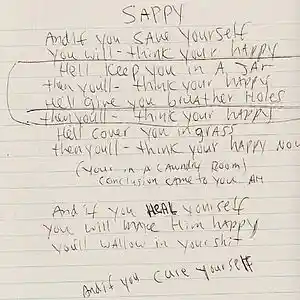 SAPPY
And if you SAVE yourself
you will - think your HAPPY
Hell keep you in A JAR
then youll - think your HAPPY
Hell give you breather Holes
then youll - think your HAPPY
Hell cover you in grass
then youll - think your HAPPY now
(your in a LAUNDRY ROOM)
conclusion came to your AM
And if you HEAL yourself
you will make Him HAPPY
you'll wallow in your shit
And if you cure yourself